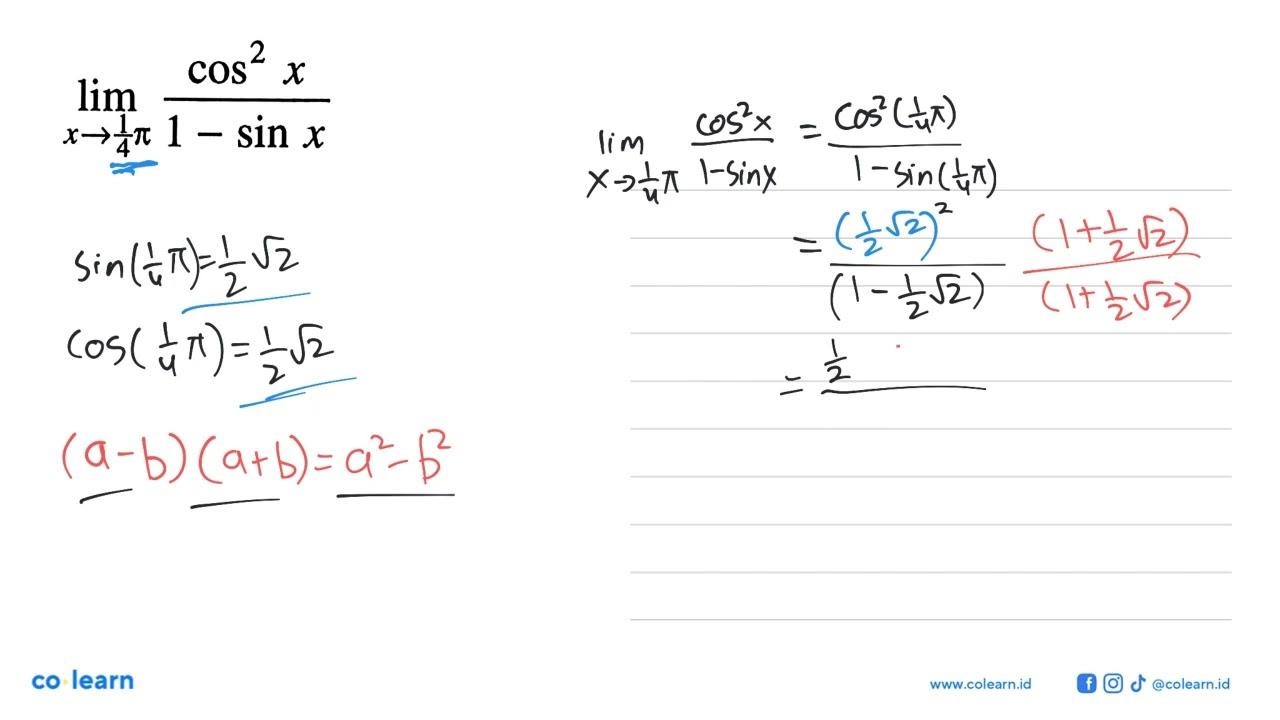 lim x→1/4π cos² x / 1 − sin x
sin(1/4π)=1/2√2
cos(1/4π)=1/2√2
(a-b)(a+b)=a²-b²
lim x→1/4π cos²x / 1-sinx = cos²(1/4π) / 1-sin(1/4π)
= (1/2√2)² / (1-1/2√2) (1+1/2√2) / (1+1/2√2)
= 1/2
co learn
www.colearn.id
@colearn.id